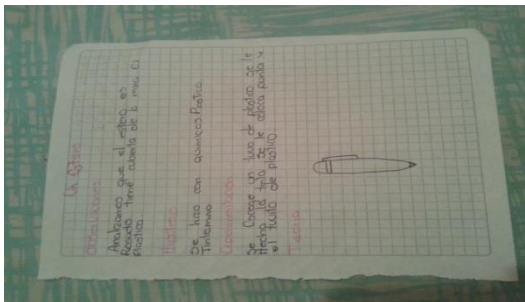 Un Esfero
Observaciones
Analizamos que el esfero es
Rosado tiene cubierta de la mina es
plastica
Hipotesis
Se hizo con quimicos Plastico
Tinta mina
Experimentacion
Se Escoge un tuvo de plastico se le
Hecha la tinta se le coloca punta y
el tuvito de plastico.